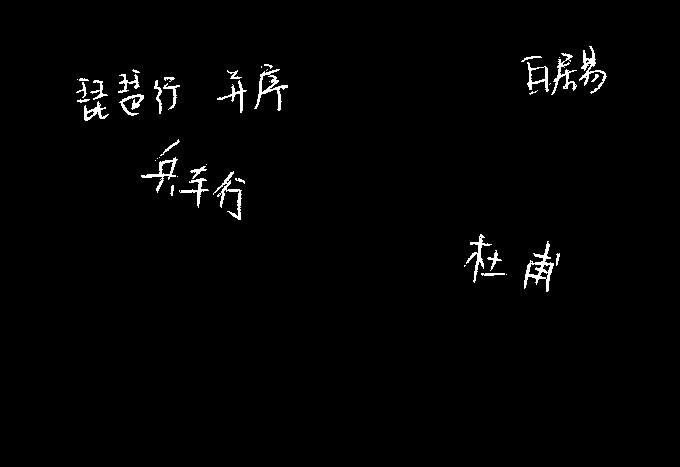 琵琶行 并序 白居易
兵车行
杜甫